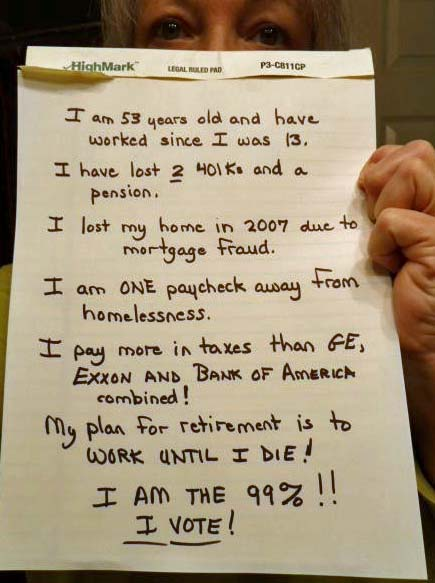 HighMark™ LEGAL RULED PAD P3-C811CP
I am 53 years old and have
worked since I was 13.
I have lost 2 401Ks and a
pension.
I lost my home in 2007 due to
mortgage fraud.
I am ONE paycheck away from
homelessness.
I pay more in taxes than GE,
EXXON AND BANK OF AMERICA
combined!
My plan for retirement is to
WORK UNTIL I DIE!
I AM THE 99%!!
I VOTE!